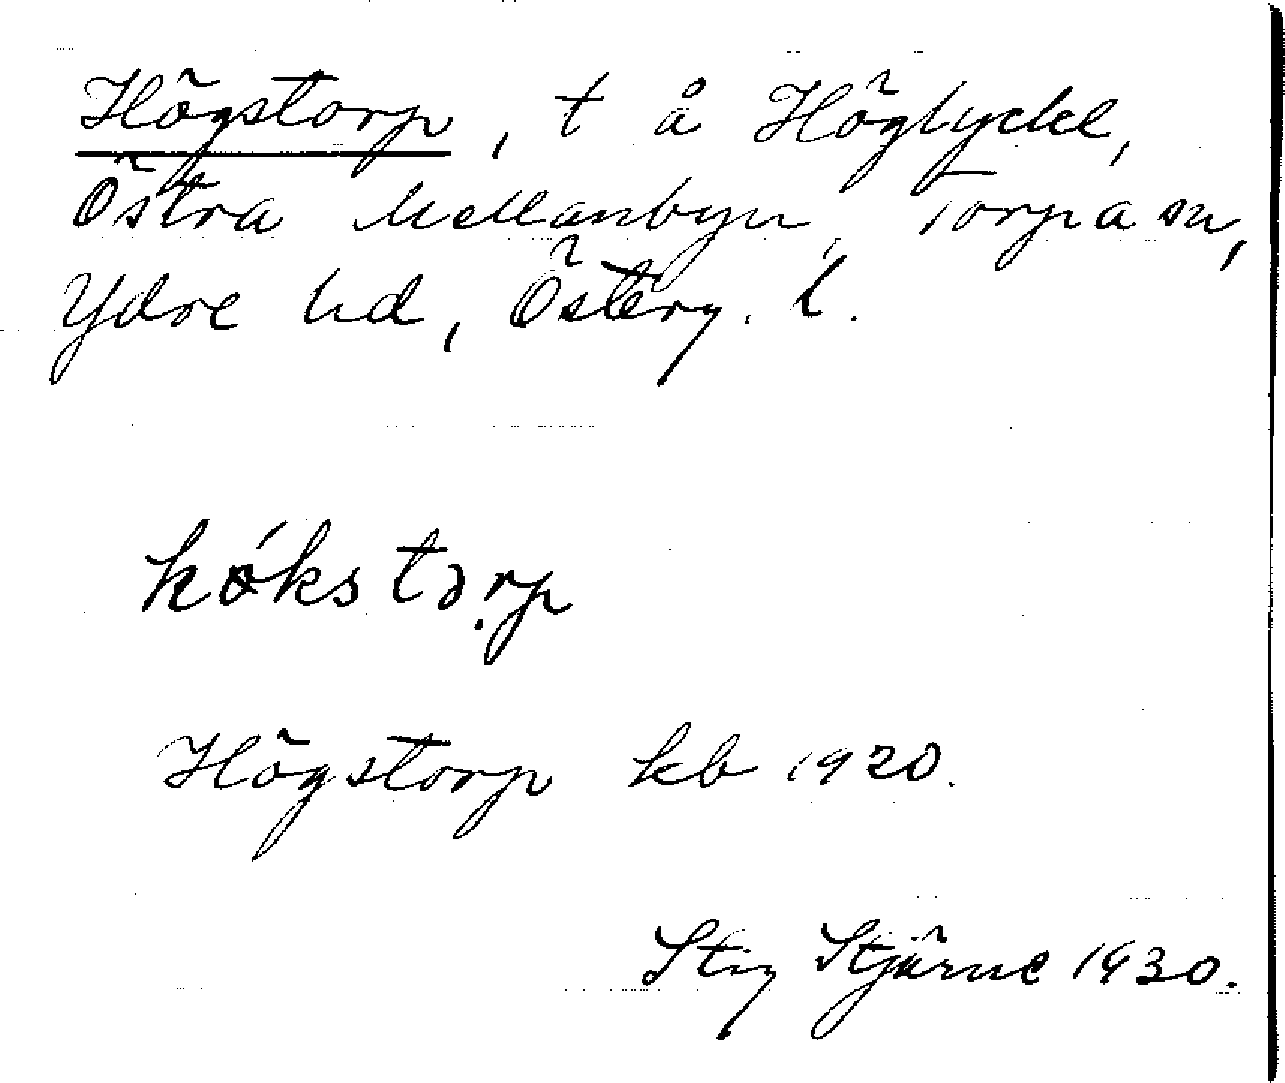 Högstorp, t å Höglycke,
Östra Mellanbyn, Torpa sn,
Ydre hd, Österg. l.
hókstɔrp
Högstorp kb 1920.
Stig Stjärne 1930.